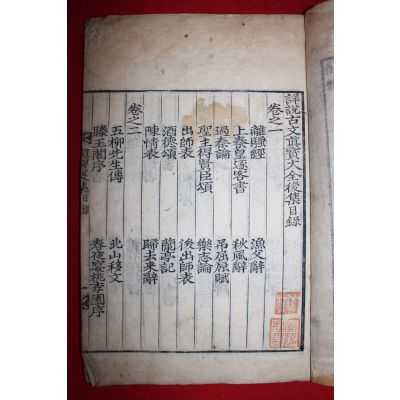 詳說古文眞寶大全後集目錄
卷之一
離騷經 漁父辭
上秦皇逐客書 秋風辭
過秦論 吊屈原賦
聖主得賢臣頌 樂志論
出師表 後出師表
酒德頌 蘭亭記
陳情表 歸去來辭
卷之二
五柳先生傳 北山移文
滕王閣序 春夜宴桃李園序
眞寶後集目錄 一